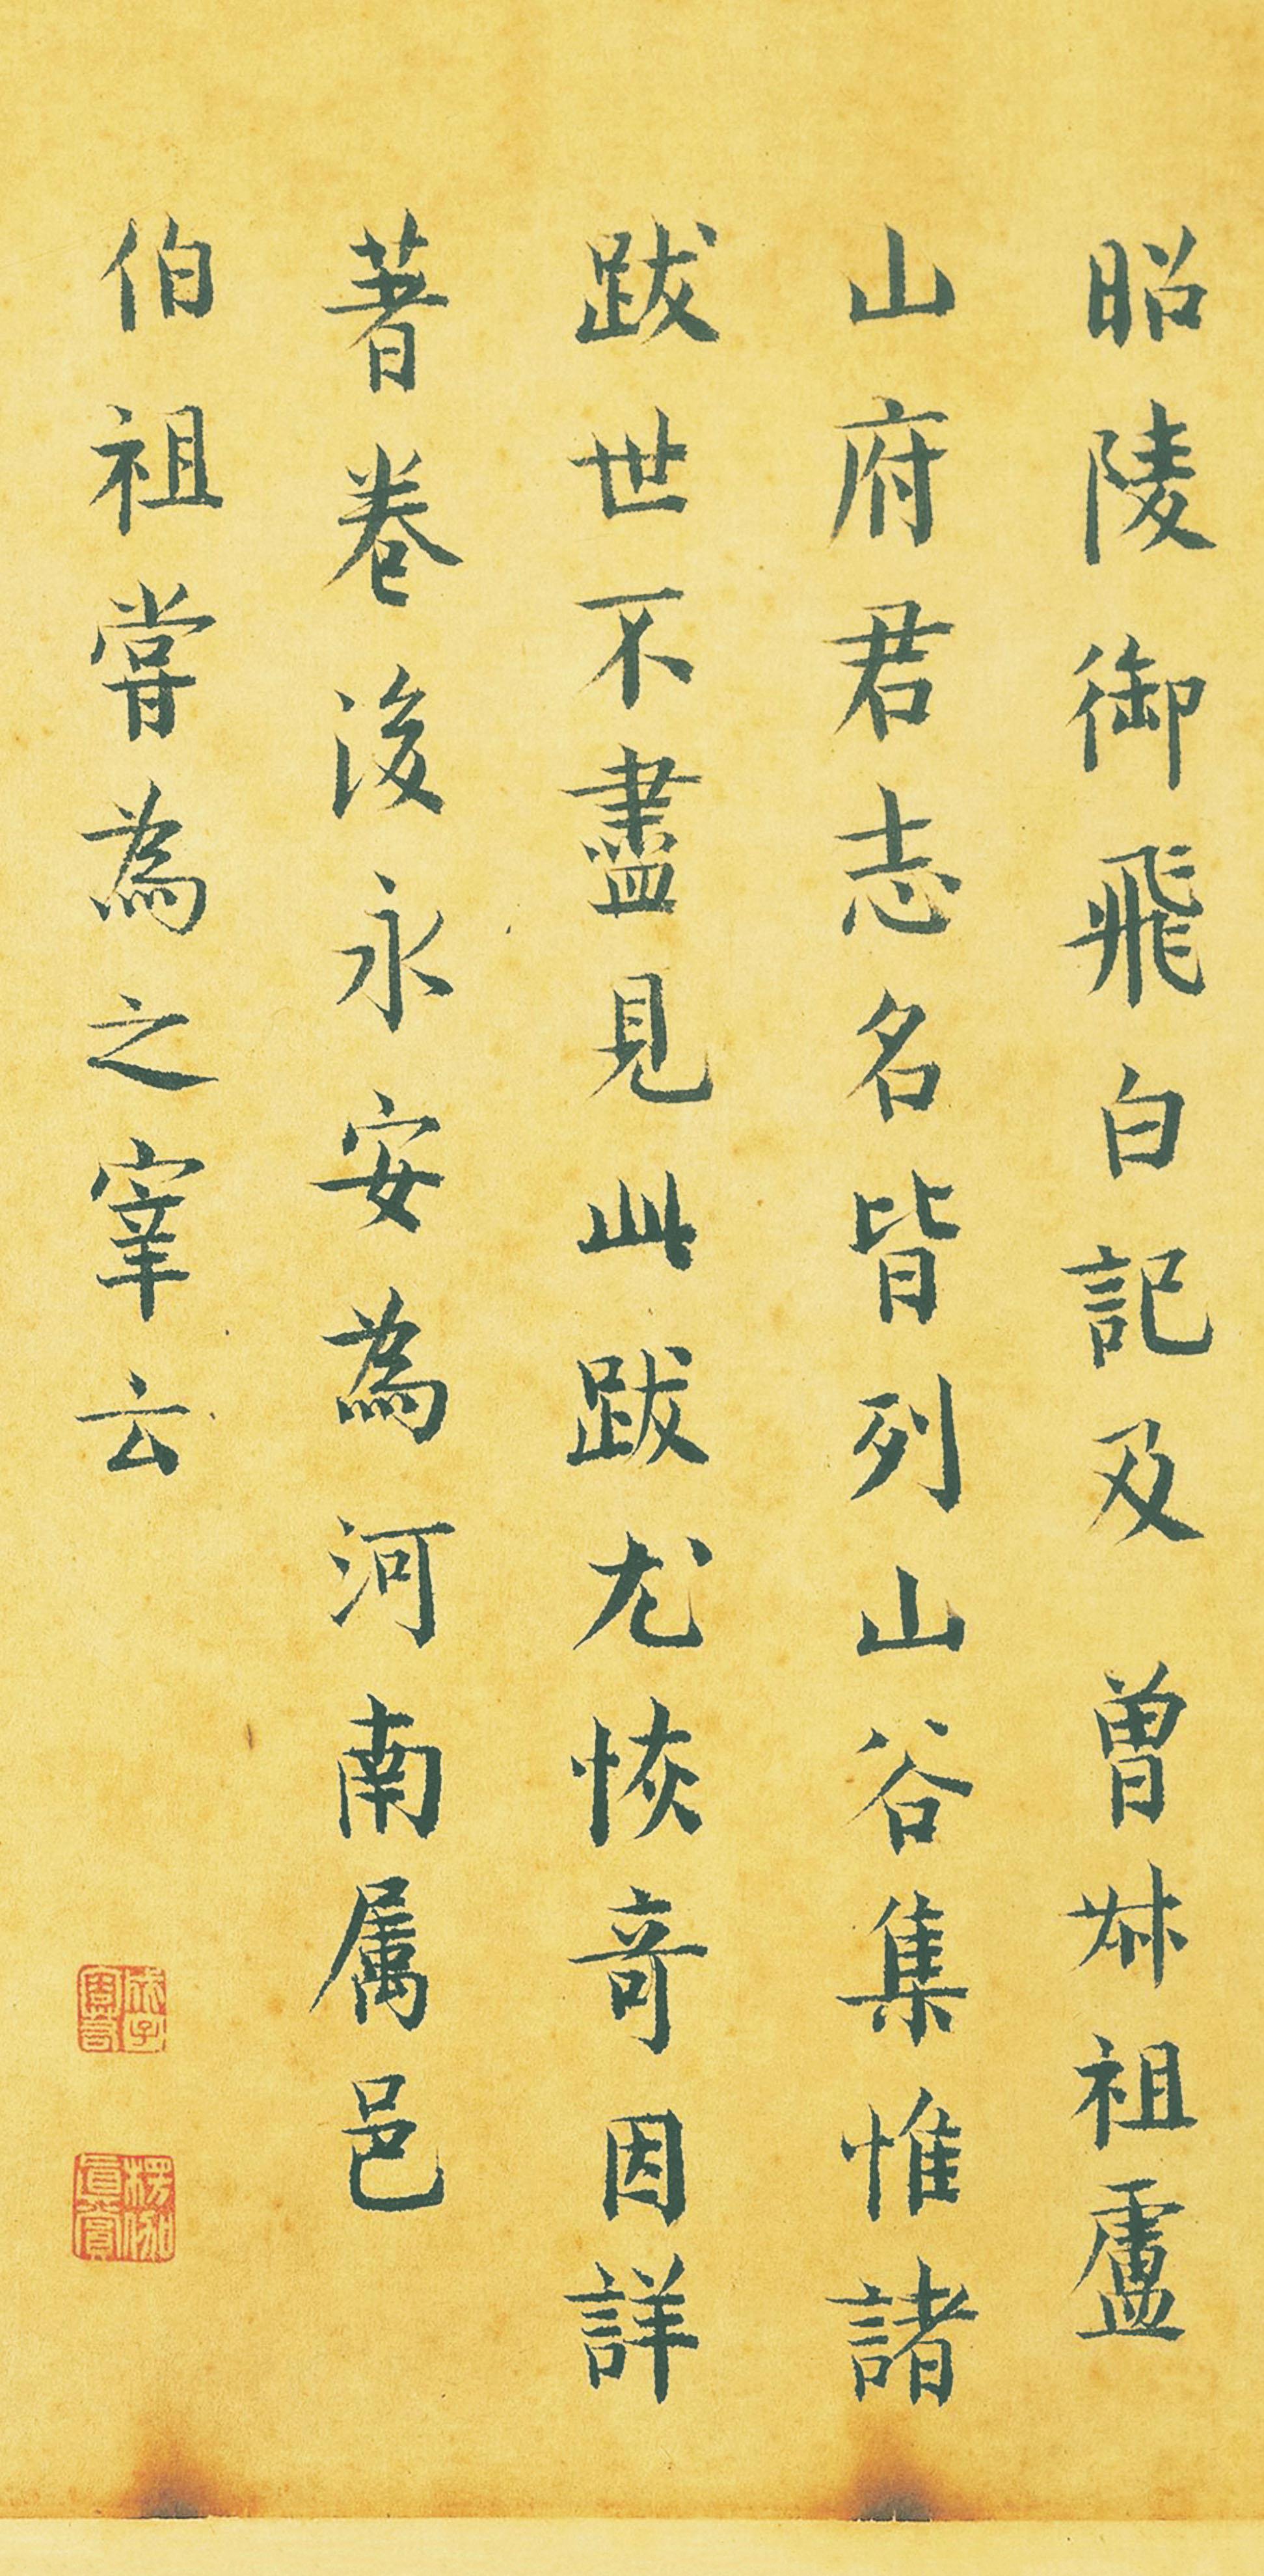 昭陵御飛白記及 曾叔祖盧
山府君志名皆列山谷集惟諸
跋世不盡見此跋尤恢奇因詳
著卷後永安為河南屬邑
伯祖嘗為之宰云
成子容若
楞伽真賞